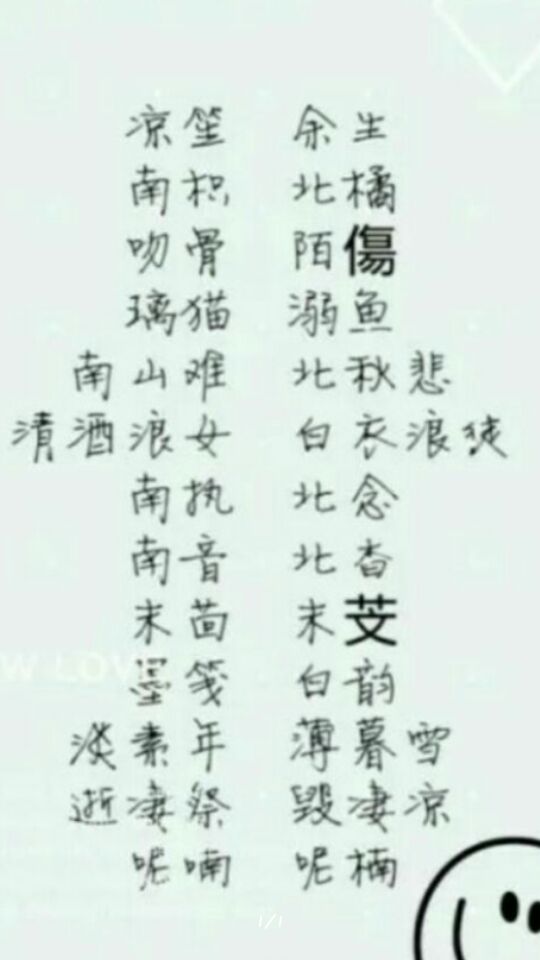 凉笙 余生
南枳 北橘
吻骨 陌傷
璃猫 溺鱼
南山难 北秋悲
清酒浪女 白衣浪徒
南执 北念
南音 北杳
末茴 末芠
墨笺 白韵
淡素年 薄暮雪
逝凄祭 毁凄凉
呢喃 呢楠
W LOVE
1/1